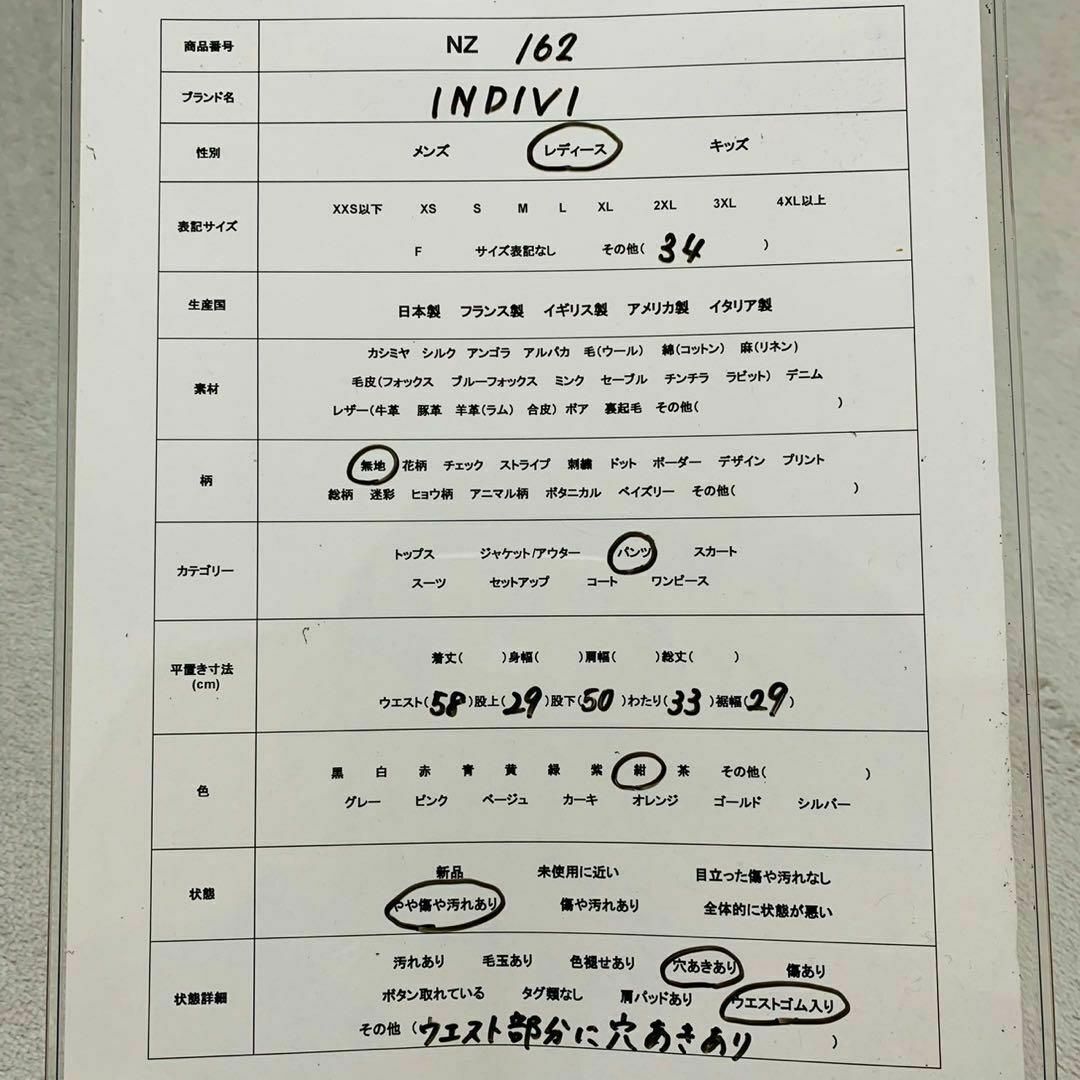 商品番号 NZ 162
ブランド名 INDIVI
性別 メンズ レディース キッズ
表記サイズ
XXS以下 XS S M L XL 2XL 3XL 4XL以上
F サイズ表記なし その他( 34 )
生産国 日本製 フランス製 イギリス製 アメリカ製 イタリア製
素材
カシミヤ シルク アンゴラ アルパカ 毛(ウール) 綿(コットン) 麻(リネン)
毛皮(フォックス ブルーフォックス ミンク セーブル チンチラ ラビット) デニム
レザー(牛革 豚革 羊革(ラム) 合皮) ボア 裏起毛 その他( )
柄
無地 花柄 チェック ストライプ 刺繍 ドット ボーダー デザイン プリント
総柄 迷彩 ヒョウ柄 アニマル柄 ボタニカル ペイズリー その他( )
カテゴリー
トップス ジャケット/アウター パンツ スカート
スーツ セットアップ コート ワンピース
平置き寸法
(cm)
着丈( )身幅( )肩幅( )総丈( )
ウエスト(58)股上(29)股下(50)わたり(33)裾幅(29)
色
黒 白 赤 青 黄 緑 紫 紺 茶 その他( )
グレー ピンク ベージュ カーキ オレンジ ゴールド シルバー
状態
新品 未使用に近い 目立った傷や汚れなし
やや傷や汚れあり 傷や汚れあり 全体的に状態が悪い
状態詳細
汚れあり 毛玉あり 色褪せあり 穴あきあり 傷あり
ボタン取れている タグ類なし 肩パッドあり ウエストゴム入り
その他 (ウエスト部分に穴あきあり )